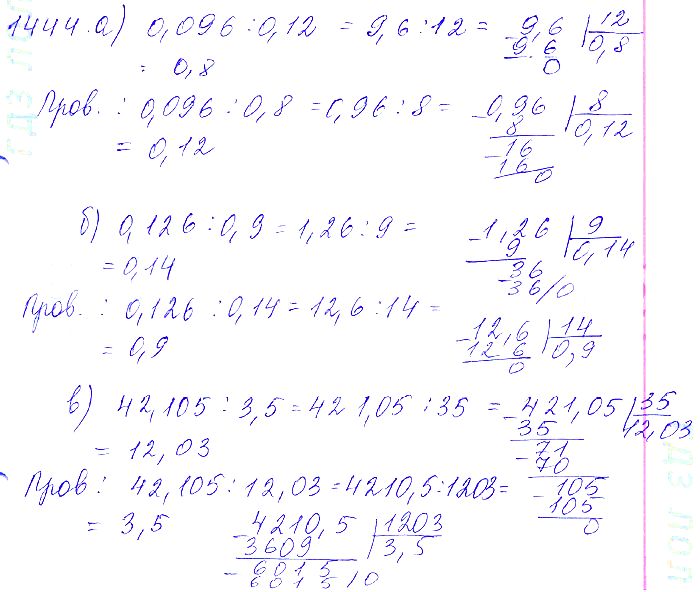 1444. а) 0,096 : 0,12 = 9,6 : 12 = -9,6 | 12
9 6 | 0,8
= 0,8 0
Пров. : 0,096 : 0,8 = 0,96 : 8 = -0,96 | 8
8 | 0,12
= 0,12 -16
16
0
б) 0,126 : 0,9 = 1,26 : 9 = -1,26 | 9
9 | 0,14
= 0,14 -36
36/0
Пров. : 0,126 : 0,14 = 12,6 : 14 =
-12,6 | 14
= 0,9 12 6 | 0,9
0
в) 42,105 : 3,5 = 421,05 : 35 = -421,05 | 35
35 | 12,03
= 12,03 -71
70
Пров : 42,105 : 12,03 = 4210,5 : 1203 = -105
105
= 3,5 -4210,5 | 1203 0
3609 | 3,5
-6015
6015/0